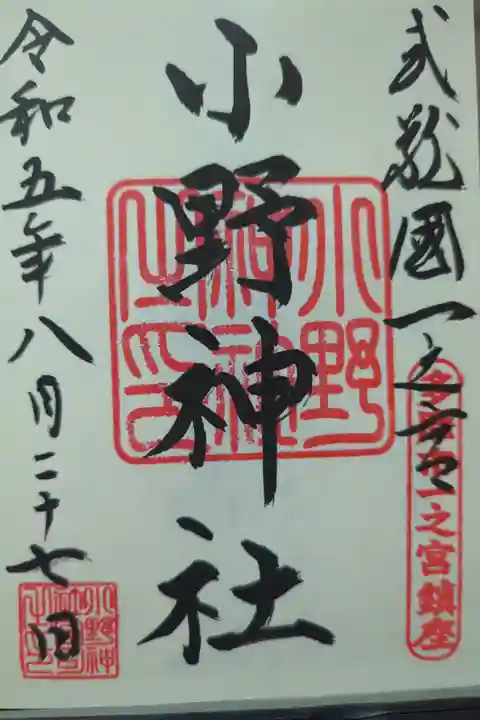 武蔵國一之宮
一之宮鎮座
小野神社
小野神社之印
令和五年八月二十七日